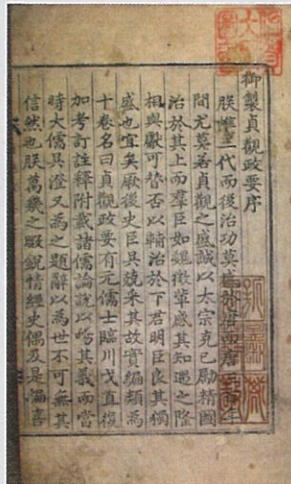 御製貞觀政要序
朕惟三代而後治功莫盛於唐而唐三百年
間尤莫若貞觀之盛誠以太宗克己勵精圖
治於其上而羣臣如魏徵輩感其知遇之隆
相與獻可替否以輔治於下君明臣良其獨
盛也宜矣厥後史臣吳兢采其故實編類為
十卷名曰貞觀政要有元儒士臨川戈直復
加考訂註釋附載諸儒論說以暢其義而當
時大儒吳澄又為之題辭以為世不可無其
信然也朕萬幾之暇銳情經史偶及是編喜